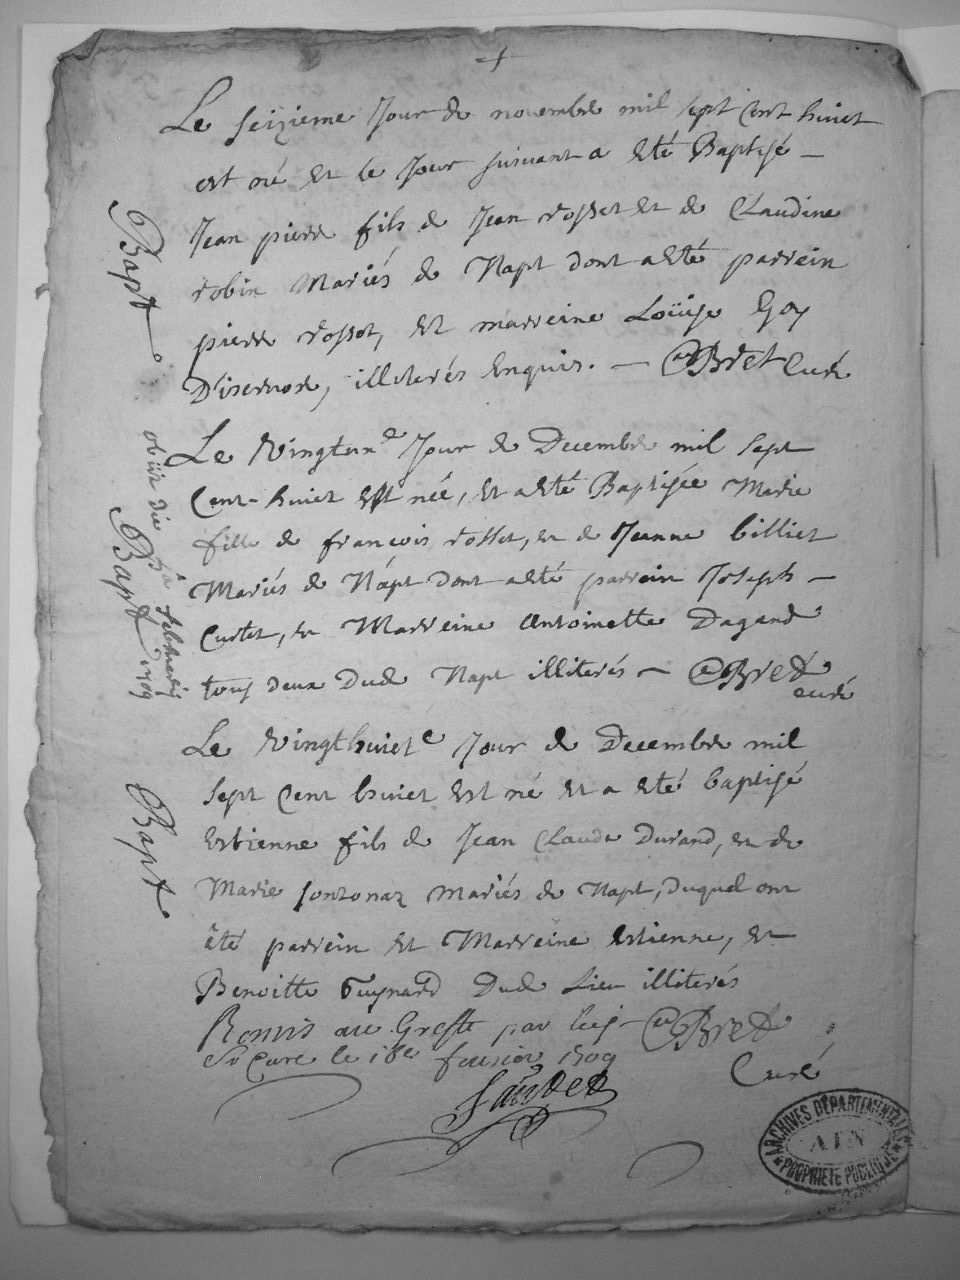 Le seizieme Jour de novembre mil sept Cent huict
est né et le Jour suivant a eté Baptisé –
Bapt
Jean pierre fils de Jean rosset et de Claudine
robin Mariés de Napt dont a eté parrein
pierre rosset, et marreine Loüise Goy
D'isernore, illiterés Enquis. – Bret Curé
Le Vingtune Jour de Decembre mil sept
Cent huict est née, et a eté Baptisée Marie
Bapt
obiit die febr 1709
fille de francois rosset, et de Jeanne billiet
Mariés de Napt dont a eté parrein Joseph –
Curtet, et Marreine Antoinette Dagand
tous deux Dud Napt illiterés – Bret
curé
Le Vingthuicte Jour de Decembre mil
Bapt
sept Cent huict est né et a eté baptisé
Estienne fils de Jean Claude Durand, et de
Marie sonzonaz Mariés de Napt, duquel ont
été parrein et Marreine Estienne, et
Benoitte Guynard Dud Lieu illiterés
Remis au Greffe par led Bret
Sr Curé le 18e fevrier 1709
Curé
ARCHIVES DÉPARTEMENTALES
AIN
PROPRIÉTÉ PUBLIQUE